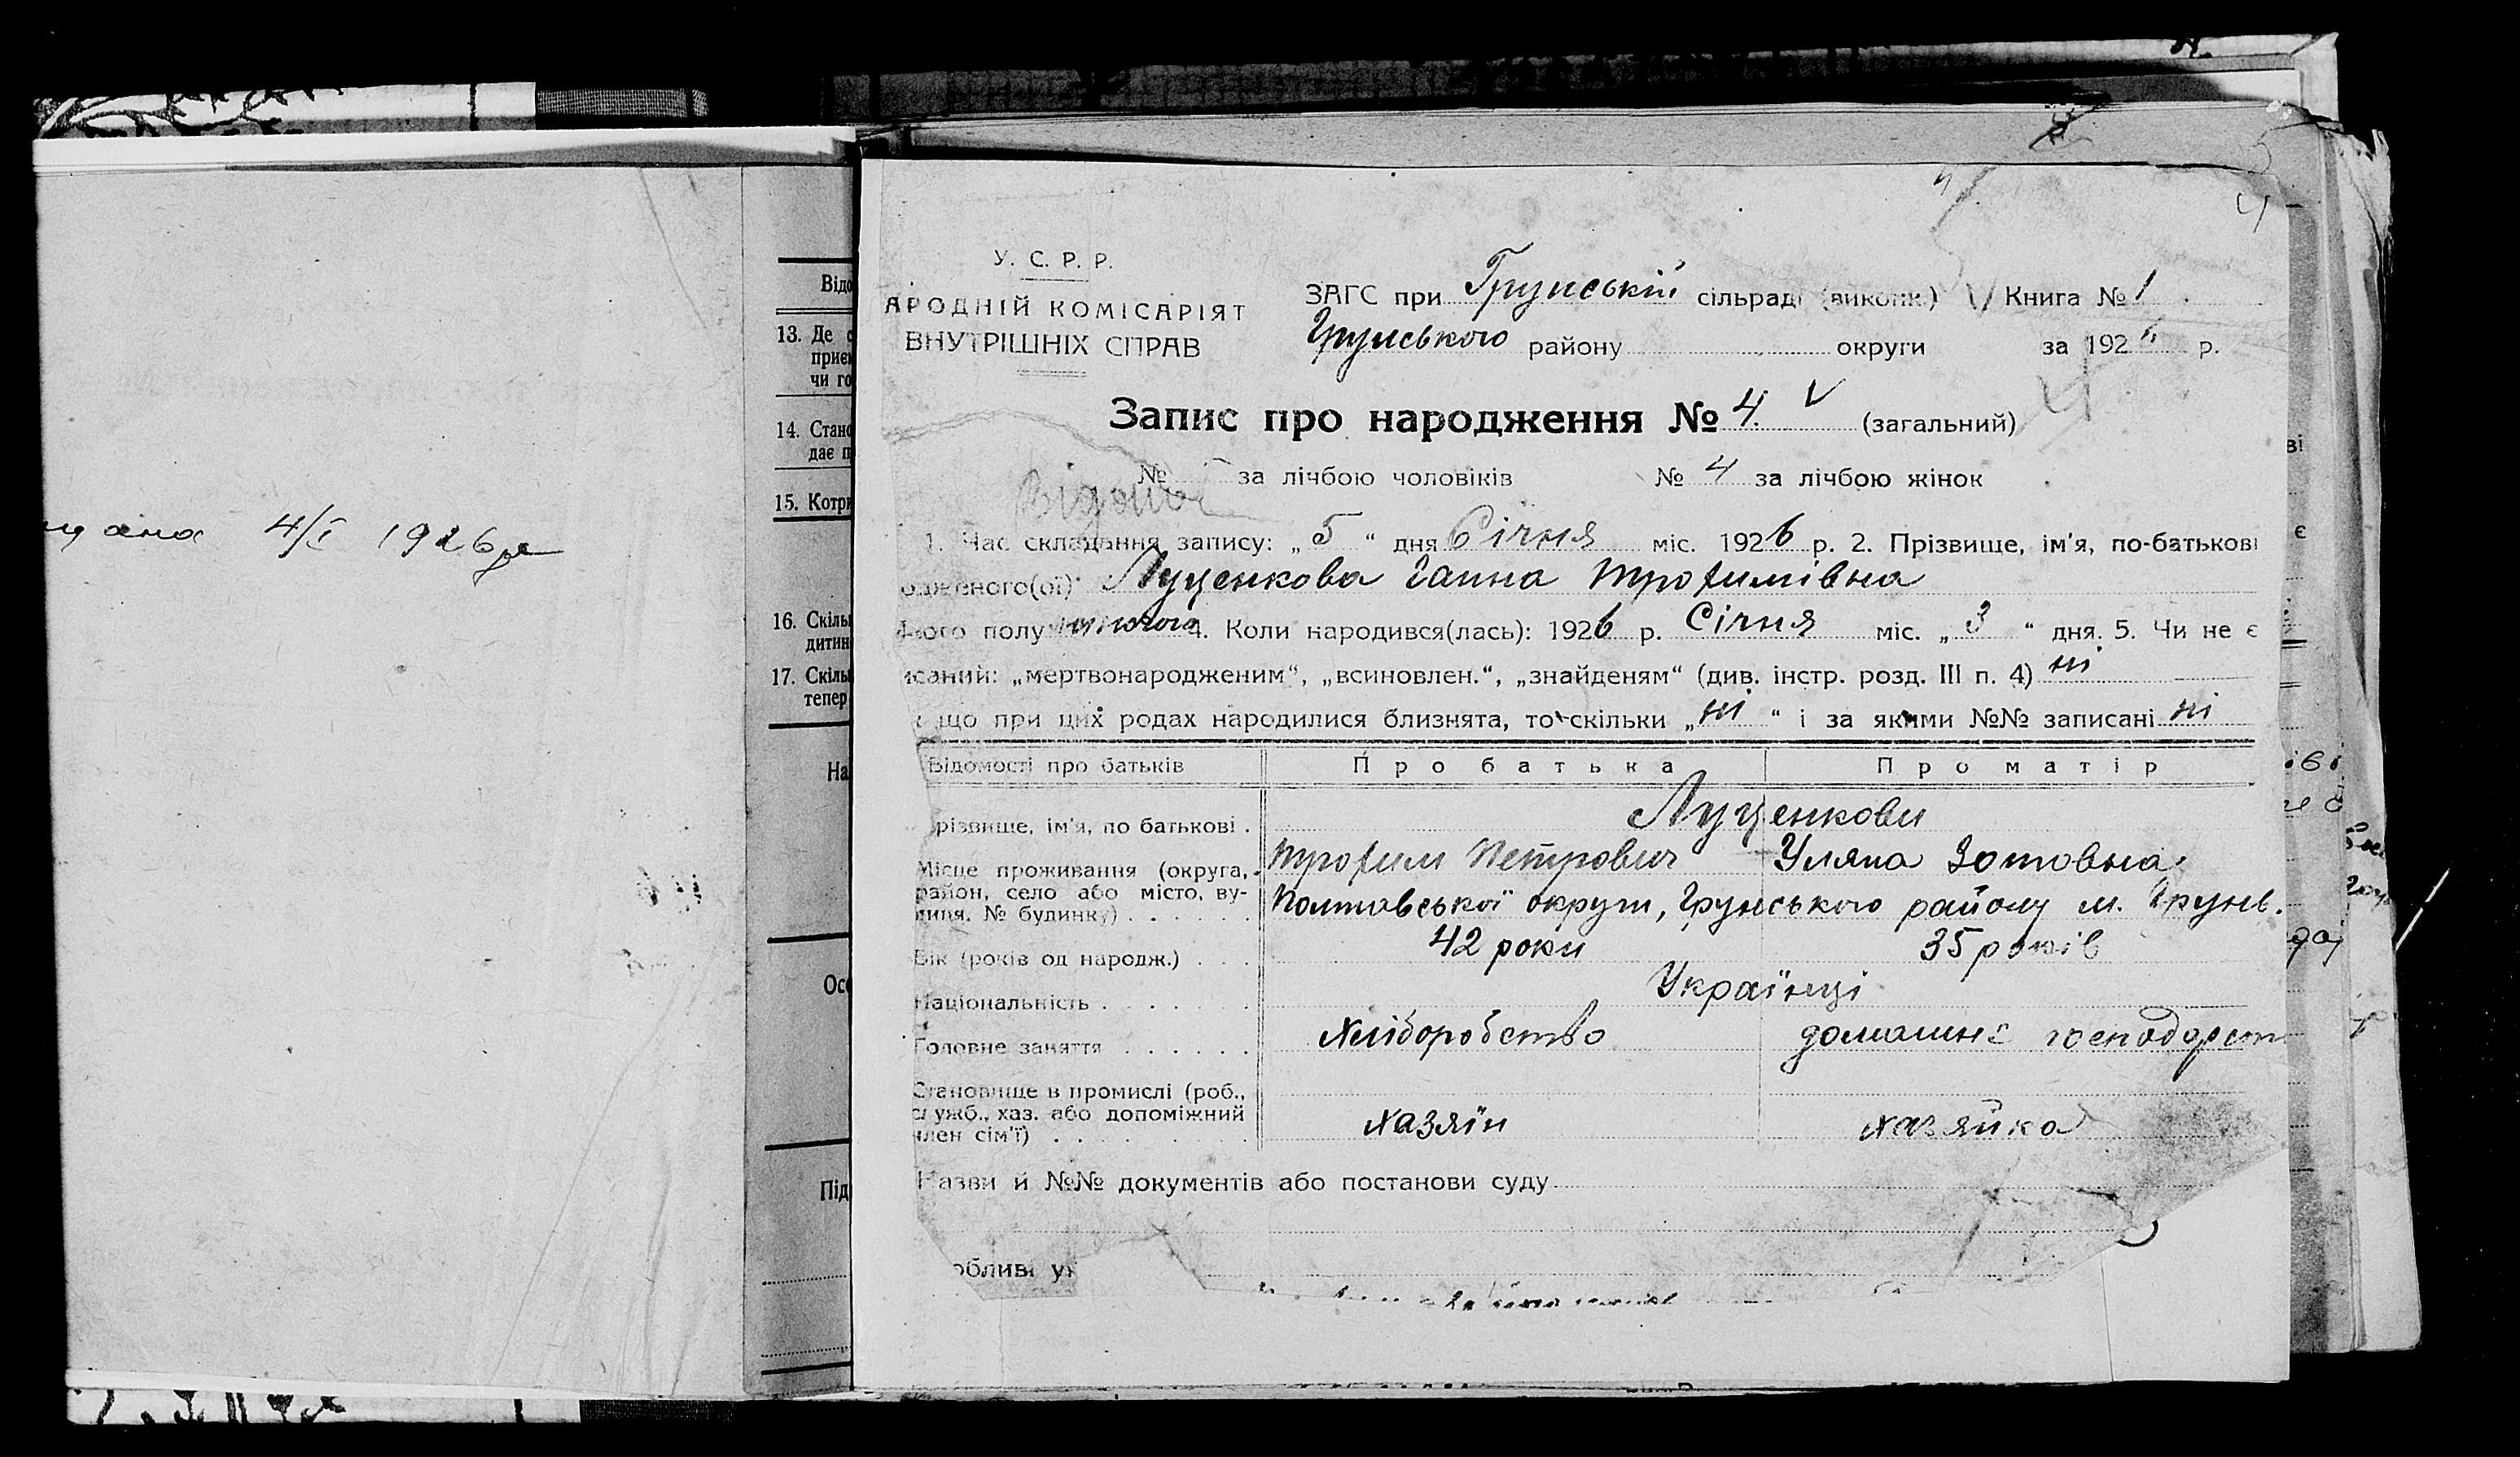 дана 4/I 1926 р
Відо
13. Де с
приєм
чи го
14. Стано
дає п
15. Котри
16. Скіль
дитин
17. Скіль
тепер
На
Осо
Під
4
У. С. Р. Р.
АРОДНІЙ КОМІСАРІЯТ
ВНУТРІШНІХ СПРАВ
ЗАГС при Грунській сільраді (викони.) Книга № 1
Грунського району округи за 1926 р.
Запис про народження № 4. V (загальний)
№ за лічбою чоловіків № 4 за лічбою жінок
1. Час складання запису: „5“ дня Січня міс. 1926 р. 2. Прізвище, ім'я, по-батькові
одженого(ої) Луценкова Ганна Трофимівна
ного полу жіночого 4. Коли народився(лась): 1926 р. Січня міс. „3“ дня. 5. Чи не є
исаний: „мертвонародженим“, „всиновлен.“, „знайденям“ (див. інстр. розд. III п. 4) ні
що при цих родах народилися близнята, то скільки „ні“ і за якими №№ записані ні
Відомості про батьків Про батька Про матір
різвище, ім'я, по батькові . Луценкови
Трофим Петрович Уляна Зотовна
Місце проживання (округа,
район, село або місто, ву-
лиця, № будинку) . . . . . . Полтавської округи, Грунського району м. Грунь.
Вік (років од народж.) . . . 42 роки 35 років
Національність . . . . . . Українці
Головне заняття . . . . . . Хліборобство домашнє господарст
Становище в промислі (роб.,
служб., хаз. або допоміжний
член сім'ї) . . . . . . хазяїн хазяйка
Назви й №№ документів або постанови суду
обливі ук